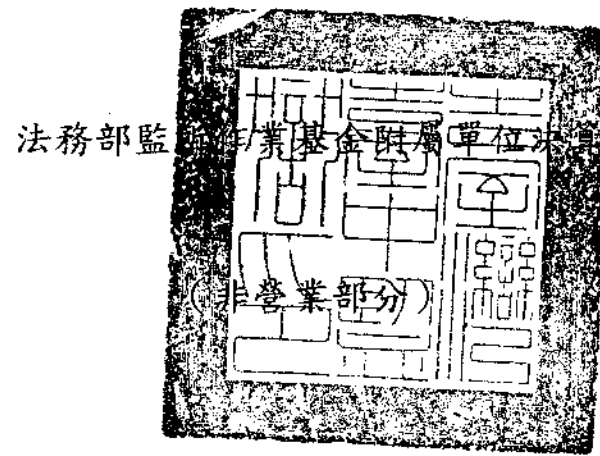 法務部監所作業基金附屬單位決算
(非營業部分)